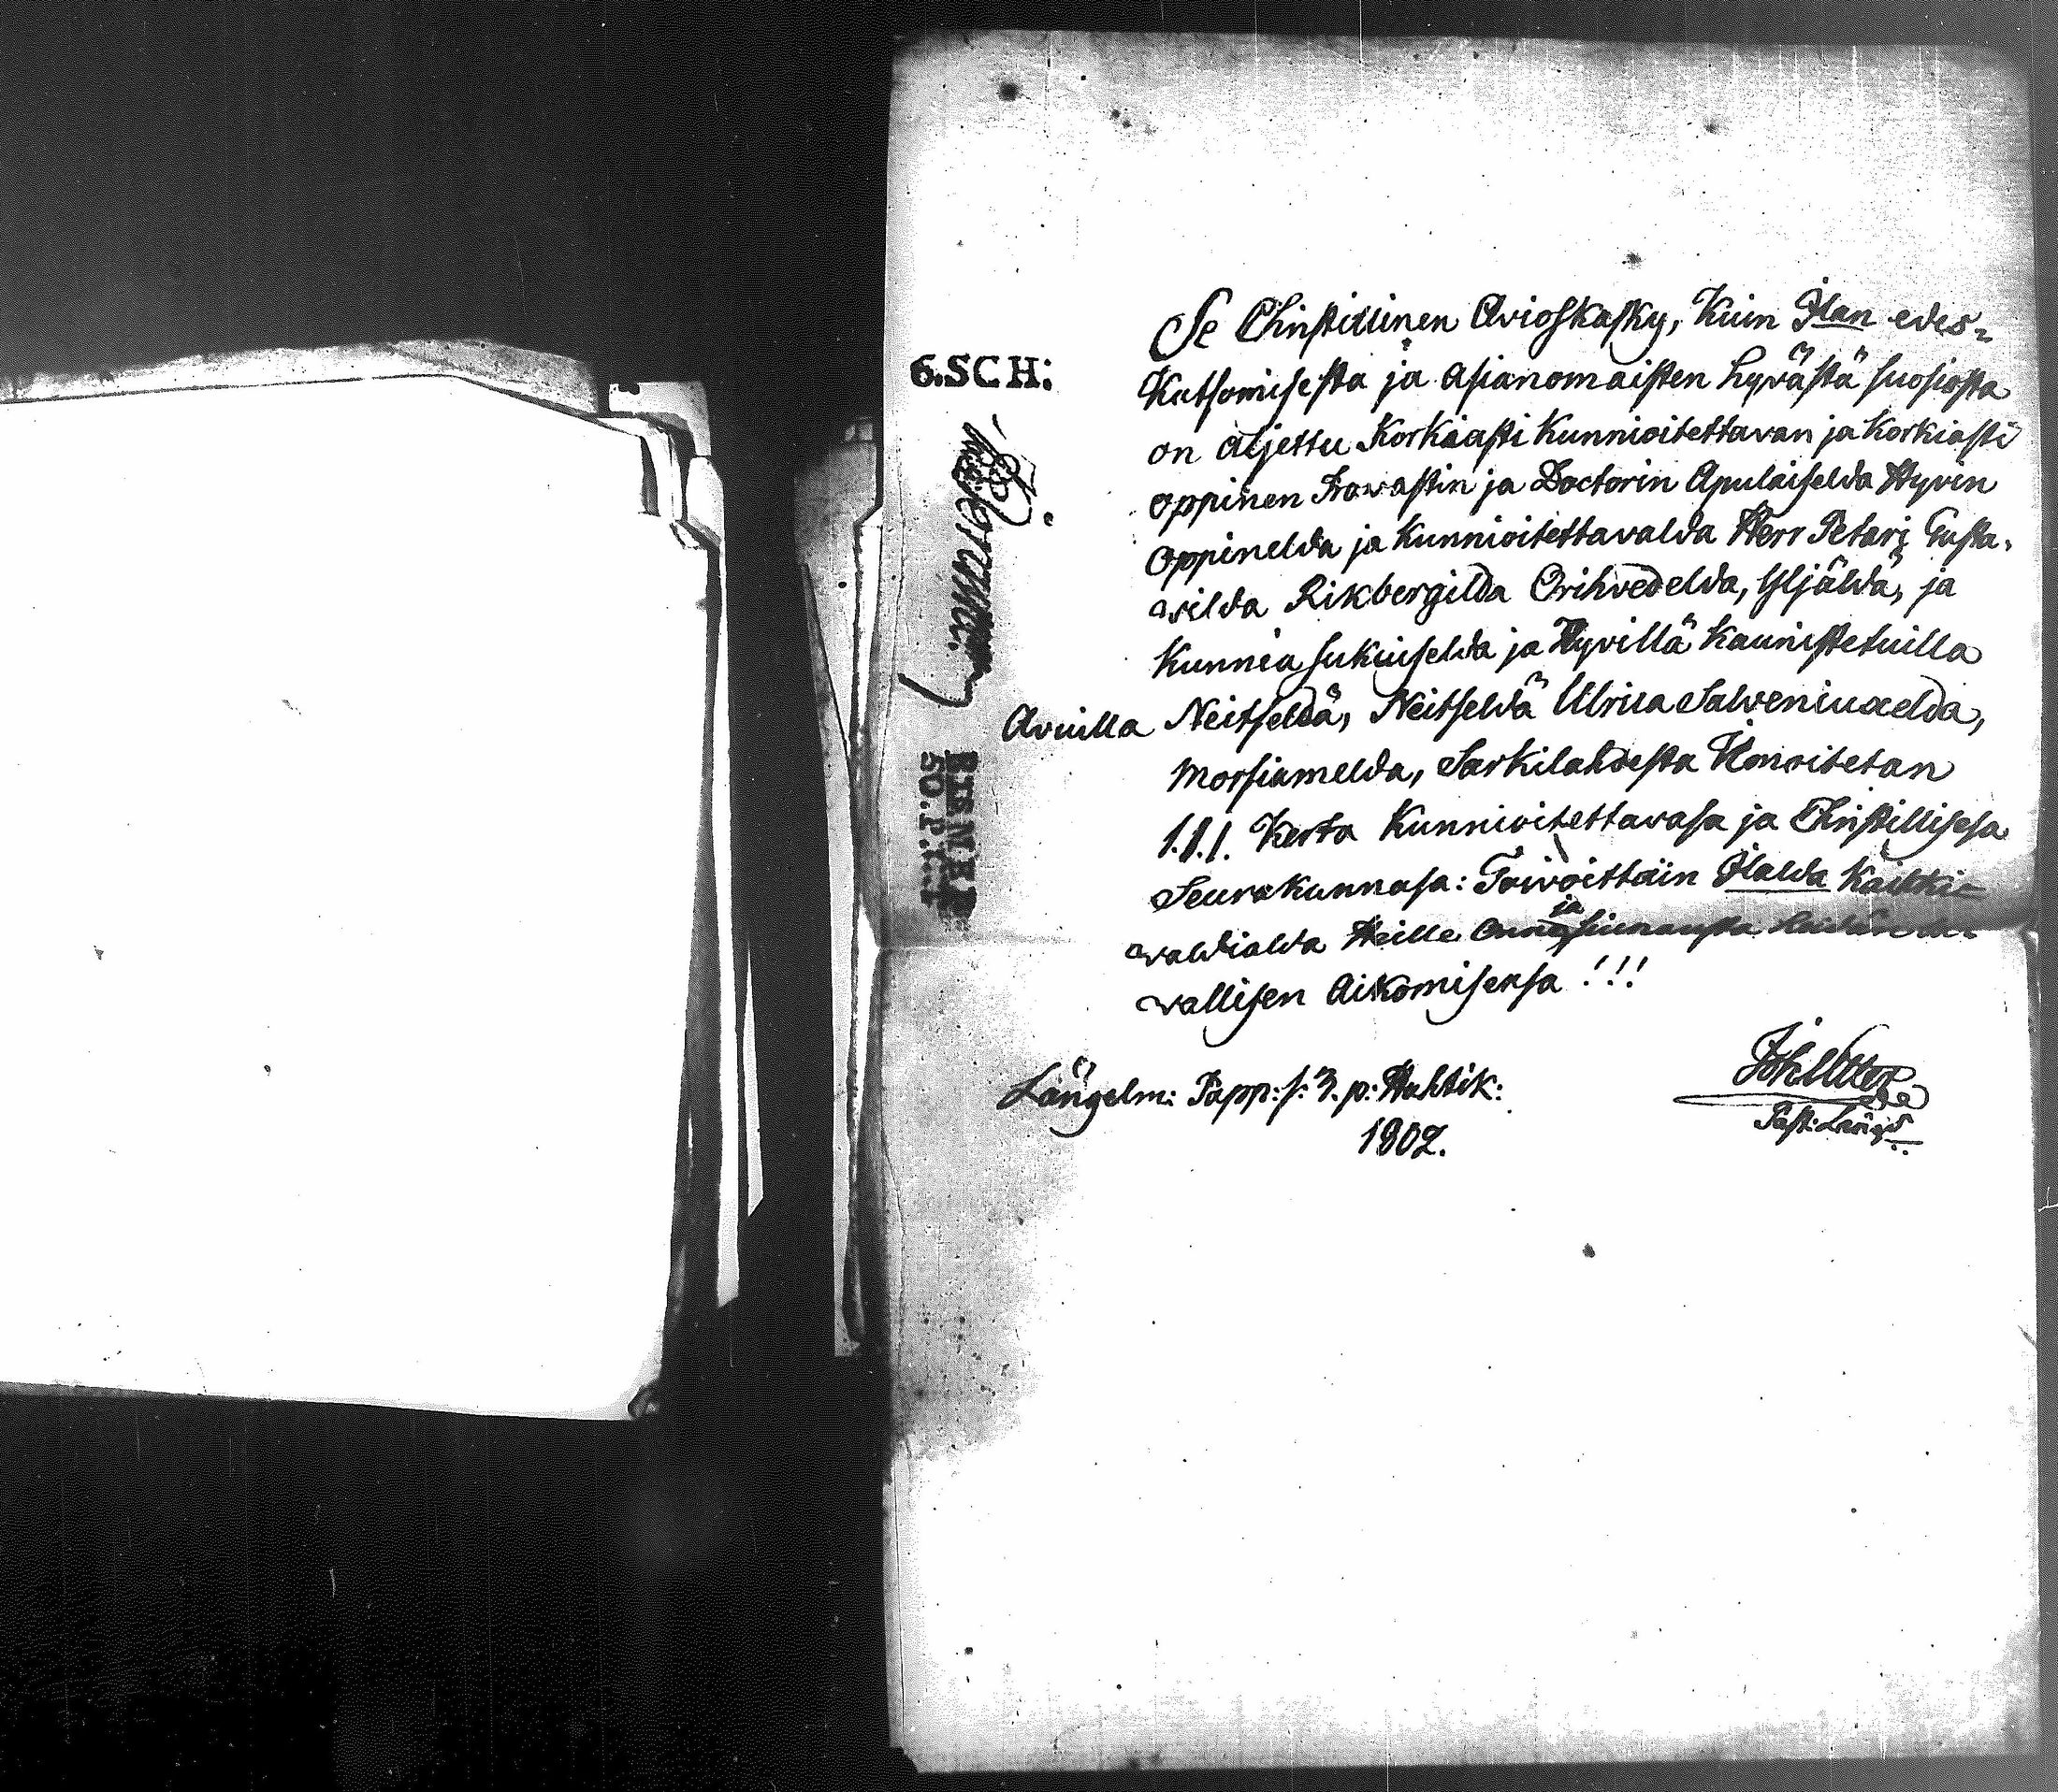 6.SCH:
Se Christillinen Avioskasky, Kuin Ilan edes-
Katsomisesta ja asianomaisten hyvästä suosiosta
on aljettu Korkiasti Kunnioitettavan ja Korkiasti
oppinen Prowastin ja Doctorin Apulaiselda Hyvin
oppinelda ja Kunnioitettavalda Herr Petari Gusta-
wilda Rikbergilda Orihvedelda, Yljäldä, ja
Kunnia sukuiselda ja Hyvillä kaunistetuilla
Avuilla Neitseldä, Neitseldä Ulrica Salveniuxelda,
Morsiamelda, Sarkilahdesta Ilmoitetan
1.1.1. Kerta Kunnioitettavasa ja Christillisesa
Seurakunnasa: Toivoittain Ilalda Kaikki-
valdialda Heille Onnea ja Siunausta
vallisen Aikomisensa!!!
Längelm: Papp: s. 3. p: Huhtik:
1802.
Past: Läng: